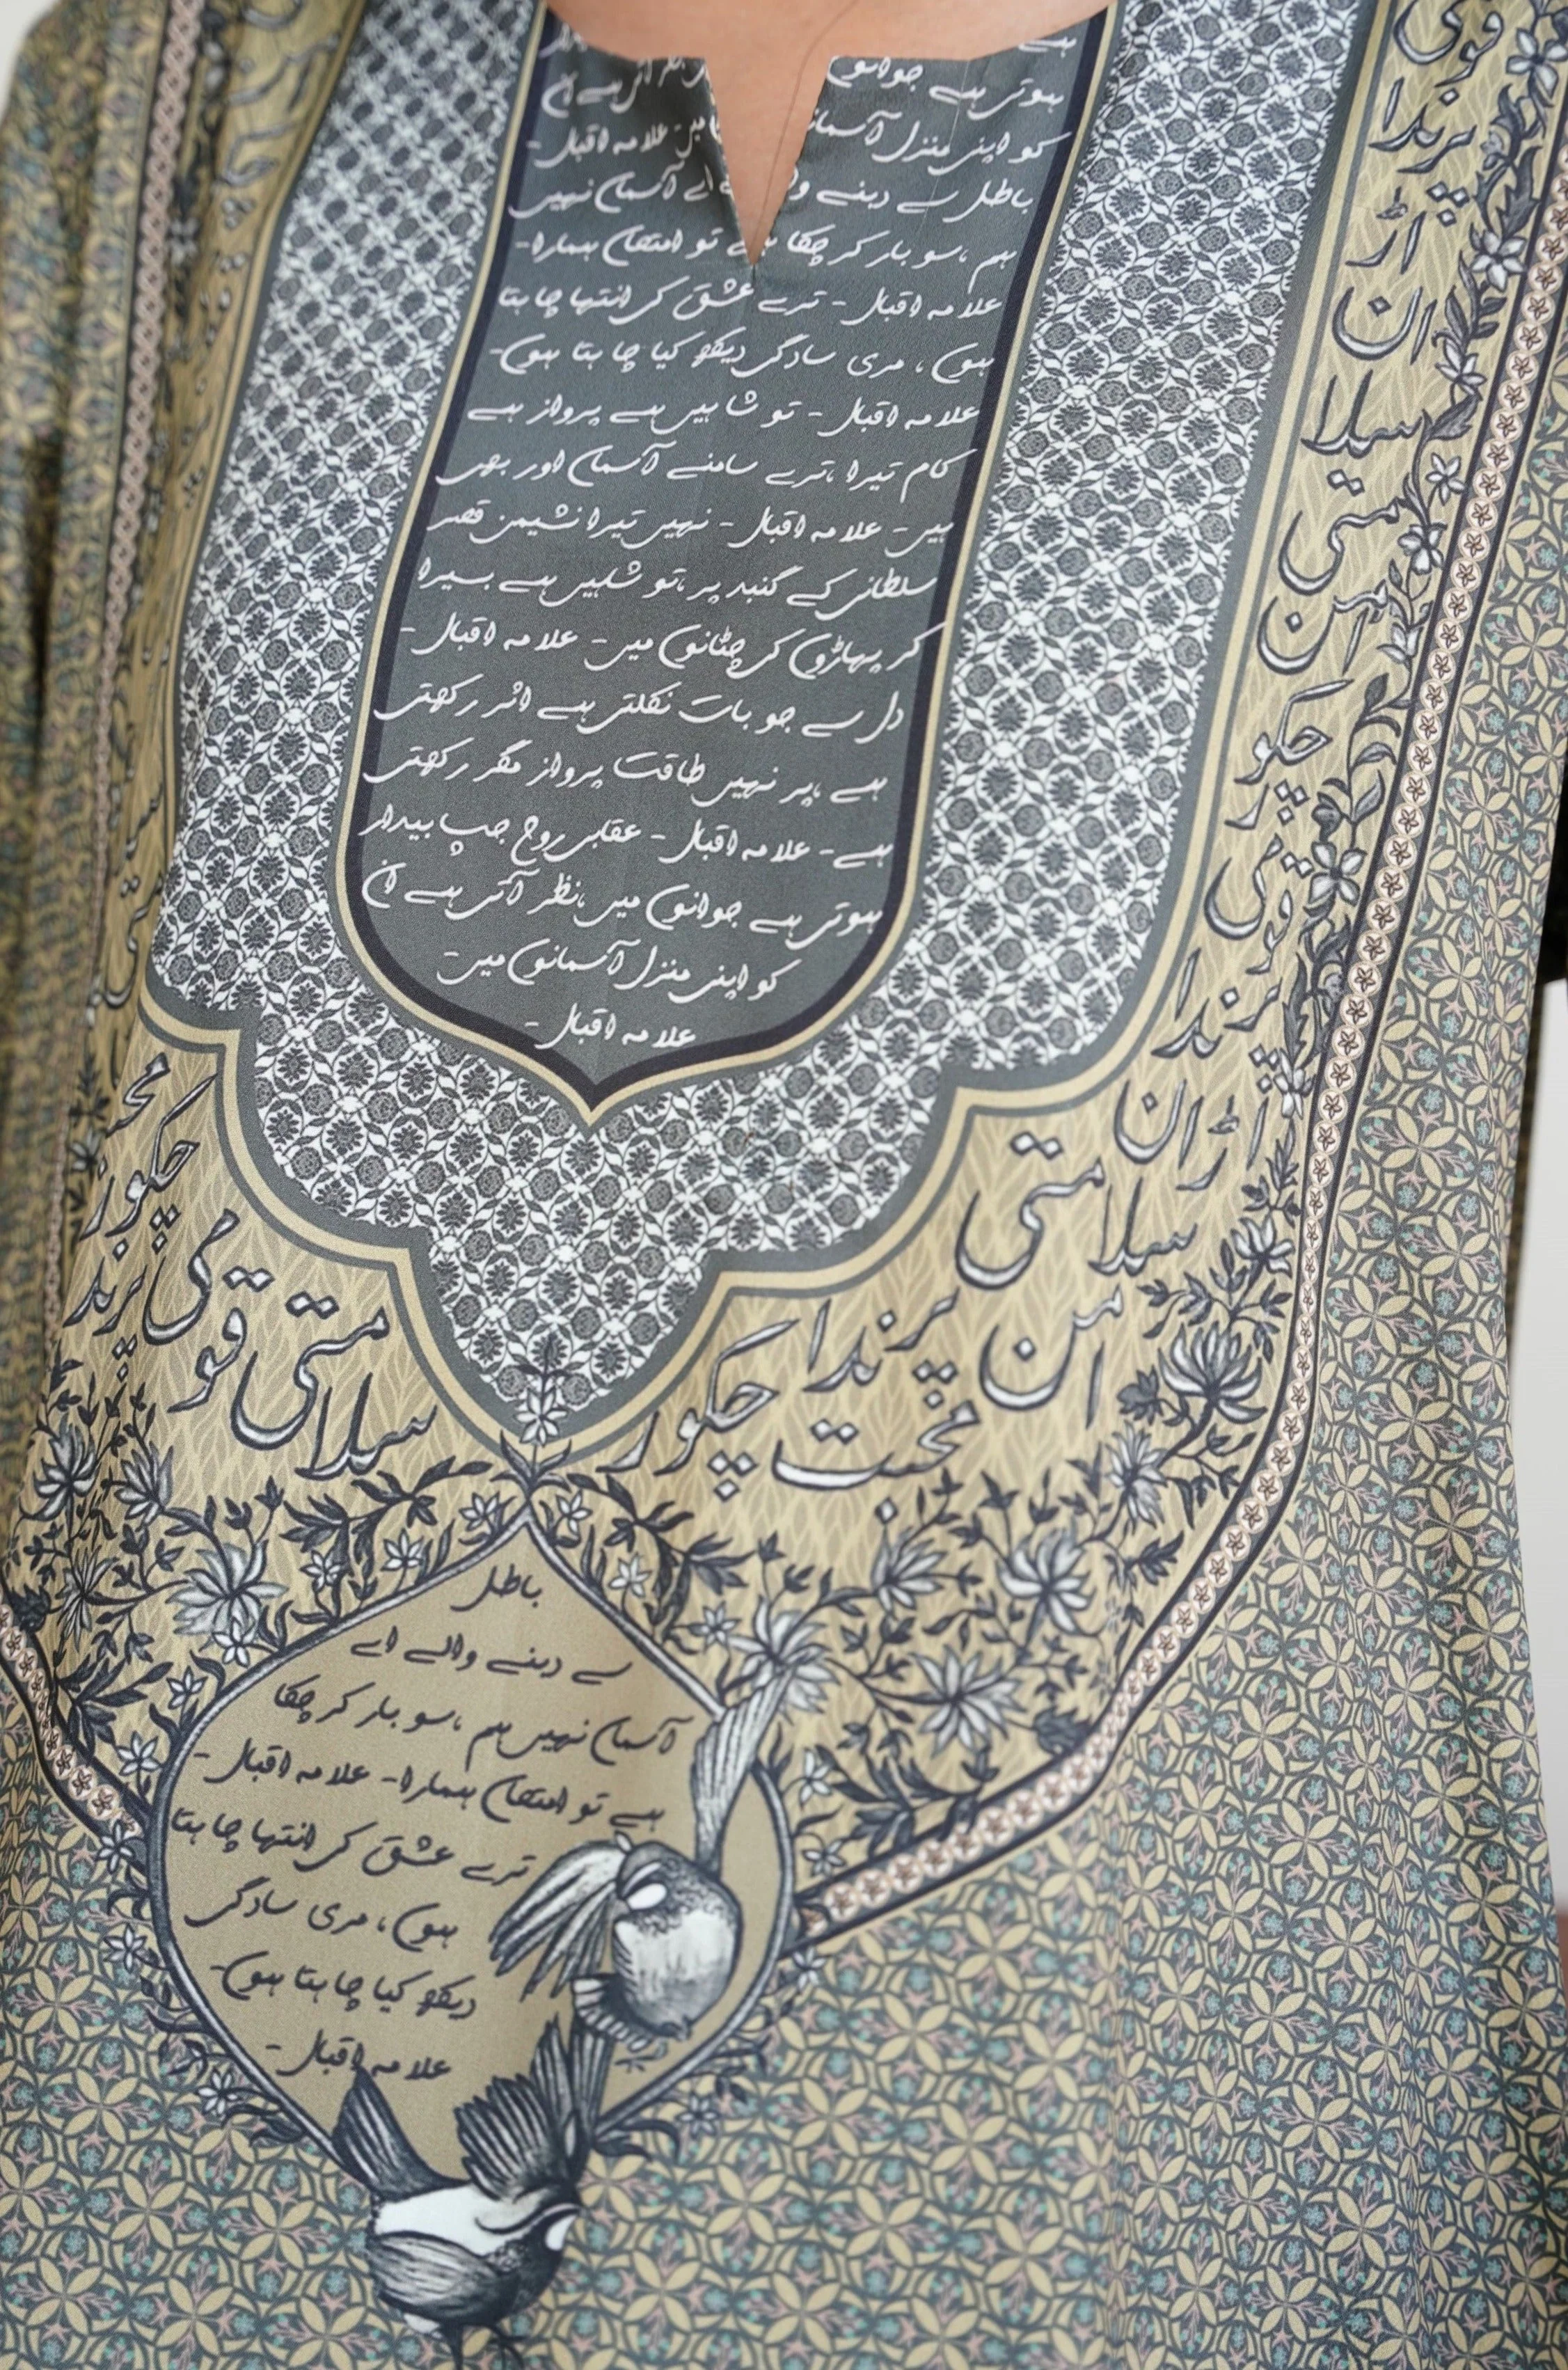 ہوتی ہے جوانوں نظر آتی ہے ان
کو اپنی منزل آسمانوں میں علامہ اقبال-
باطل سے دبنے والے اے آسمان نہیں
ہم ،سو بار کر چکا ہے تو امتحان ہمارا-
علامہ اقبال - ترے عشق کی انتہا چاہتا
ہوں ، مری سادگی دیکھ کیا چاہتا ہوں-
علامہ اقبال - تو شاہیں ہے پرواز ہے
کام تیرا ،ترے سامنے آسمان اور بھی
ہیں - علامہ اقبال - نہیں تیرا نشیمن قصر
سلطانی کے گنبد پر ،تو شاہیں ہے بسیرا
کر پہاڑوں کی چٹانوں میں - علامہ اقبال -
دل سے جو بات نکلتی ہے اثر رکھتی
ہے ،پر نہیں طاقت پرواز مگر رکھتی
ہے - علامہ اقبال - عقابی روح جب بیدار
ہوتی ہے جوانوں میں ،نظر آتی ہے ان
کو اپنی منزل آسمانوں میں -
علامہ اقبال -
قومی
پرندا
اڑان
سیلا
مستی
امن
چکور
قومی
پرندا
اڑان
سیلا مستی
امن پرندا
محبت چکور
چکور
پرندا
قومی
مستی
سیلا
باطل
سے دبنے والے اے
آسمان نہیں ہم ،سو بار کر چکا
ہے تو امتحان ہمارا - علامہ اقبال -
ترے عشق کی انتہا چاہتا
ہوں ، مری سادگی
دیکھ کیا چاہتا ہوں -
علامہ اقبال -